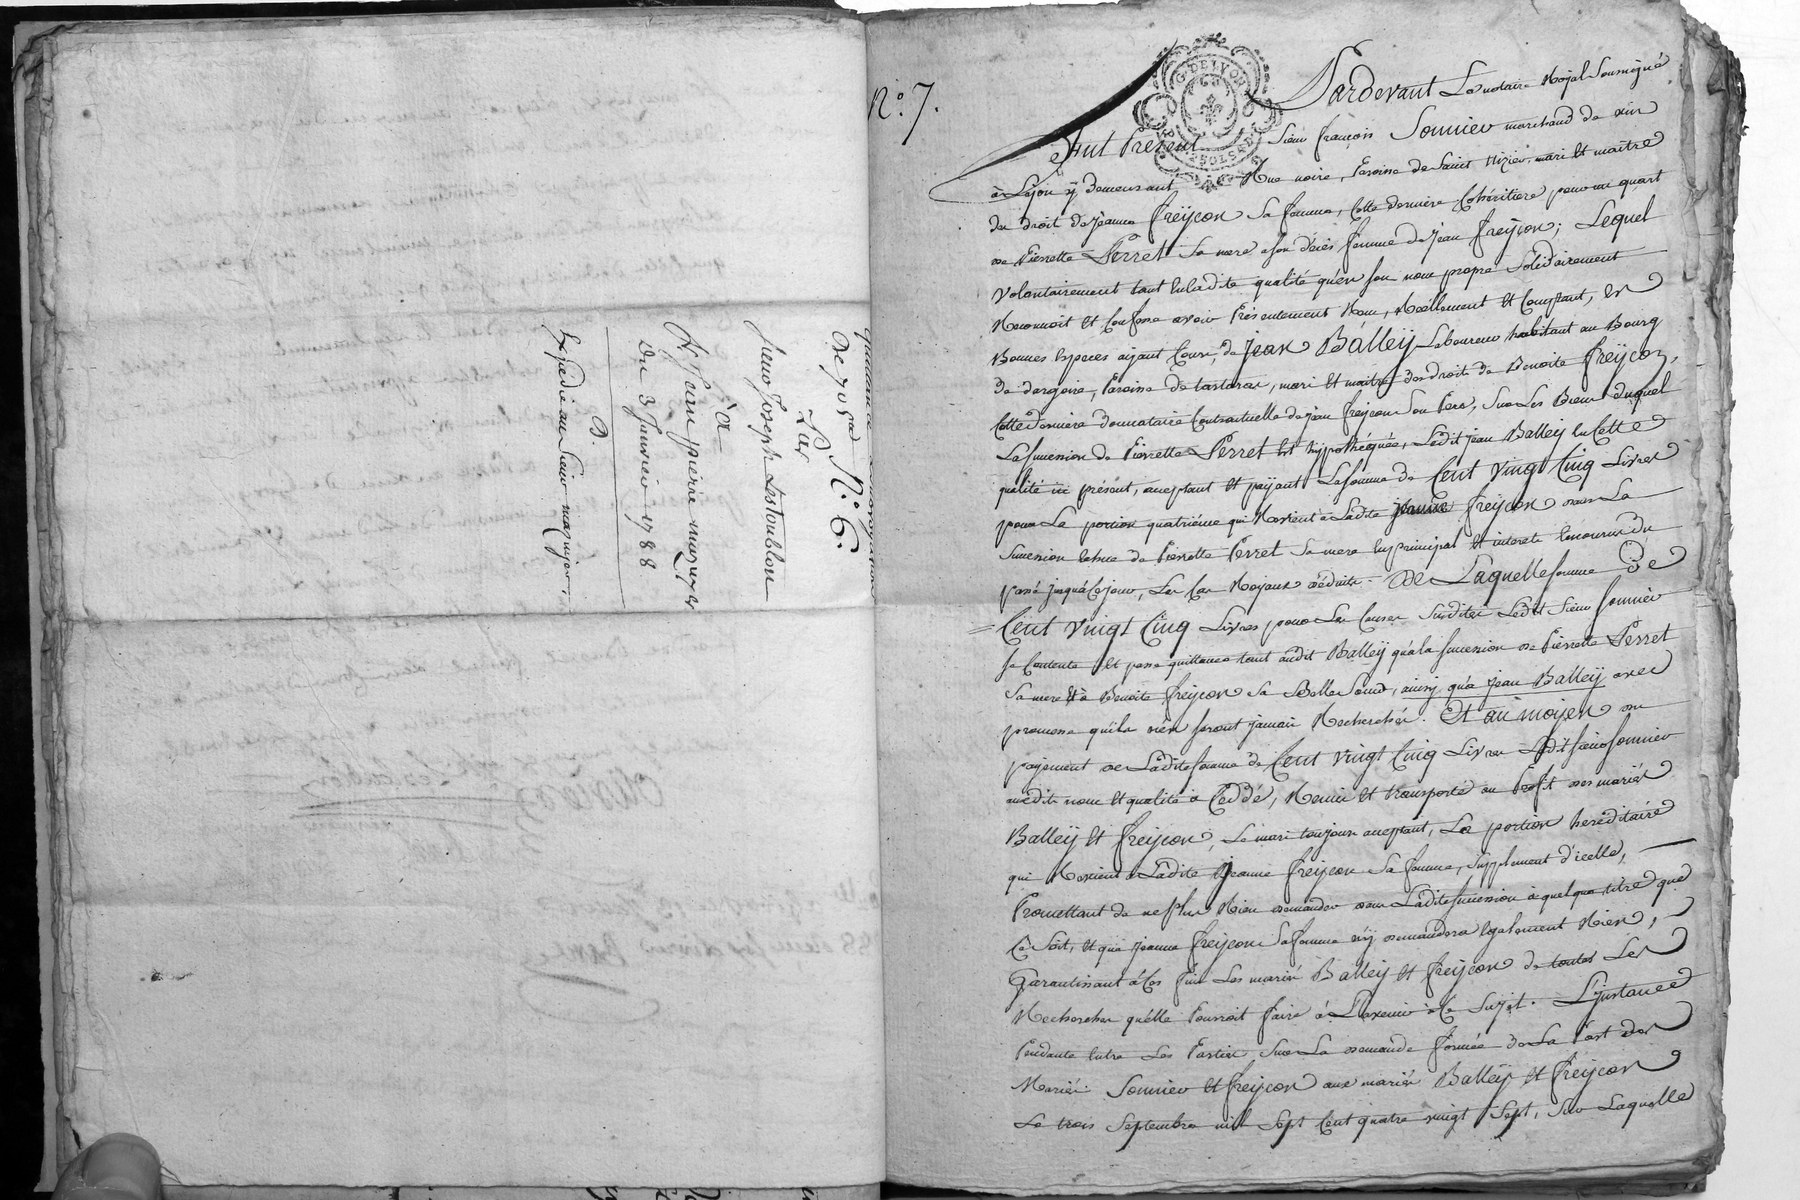 quittance
de 70 #
N.° 6.
Par
Sieur Joseph Lestoublon
à
Sr. Jean pierre maznyer
Du 3 Janvier 1788
D.
Expédié au Sieur maznyer.
N.° 7.
G. DE LYON
Pardevant Le notaire Royal Soussigné
Fut Présent Sieur françois Sonnier marchand de vin
à Lyon y demeurant Rue noire, Paroisse de Saint Nizier, mari et maitre
des droits de Jeanne freÿcon Sa femme, Cette derniere Cohéritiere pour un quart
de Pierrette Perret Sa mere a son décès femme de Jean freÿcon; Lequel
Volontairement tant en ladite qualité qu'en son nom propre Solidairement
Reconnoit et Confesse avoir Présentement Reçu, Réellement et Comptant, en
Bonnes Especes aÿant Cours, de Jean Balleÿ Laboureur habitant au Bourg
de dargoire, Paroisse de tartaras, mari et maitre des droits de Benoite freÿcon,
Cette derniere donnataire Contractuelle de Jean freÿcon Son Pere, Sur Les Biens duquel
La Succession de Pierrette Perret Est hypothéquée, Ledit jean Balleÿ En Cette
qualité ici présent, acceptant et païant La Somme de Cent vingt Cinq Livres
pour La portion quatriéme qui Revient à Ladite jeanne freÿcon dans La
Succession Echue de Pierrette Perret Sa mere En principal et interets Encourus du
passé jusqu'à Ce jour, Les Cas Royaux déduits - De Laquelle Somme De
Cent vingt Cinq Livres pour Les Causes Susdites Ledit Sieur Sonnier
Se Contente Et passe quittance tant audit Balleÿ qu'à la Succession de Pierrette Perret
Sa mere Et à Benoite freÿcon Sa Belle Soeur, ainsy qu'a jean Balleÿ avec
promesse qu'ils n'en seront jamais Recherchés. Et au moyen du
payement de Ladite Somme de Cent vingt Cinq Livres Ledit Sieur Sonnier
audit nom Et qualité à Cedé, Remis et transporté au Profit des mariés
Balleÿ Et freÿcon, Le mari toujours acceptant, La portion héréditaire
qui Revient à Ladite Jeanne freÿcon Sa femme, Supplement d'icelle,
Promettant de ne plus Rien demander dans Ladite Succession à quelque titre que
Ce Soit, et que Jeanne freÿcon Sa femme n'y demandera Egalement Rien,
Garantissant à Ces fins Les mariés Balleÿ Et freÿcon de toutes Les
Recherches qu'elle Pourroit faire à L'avenir à Ce Sujet. L'instance
Pendante Entre Les Parties Sur La demande formée de La Part des
Mariés Sonnier et freÿcon aux mariés Balleÿ et freÿcon
Le trois Septembre mil Sept Cent quatre vingt Sept, Sur Laquelle